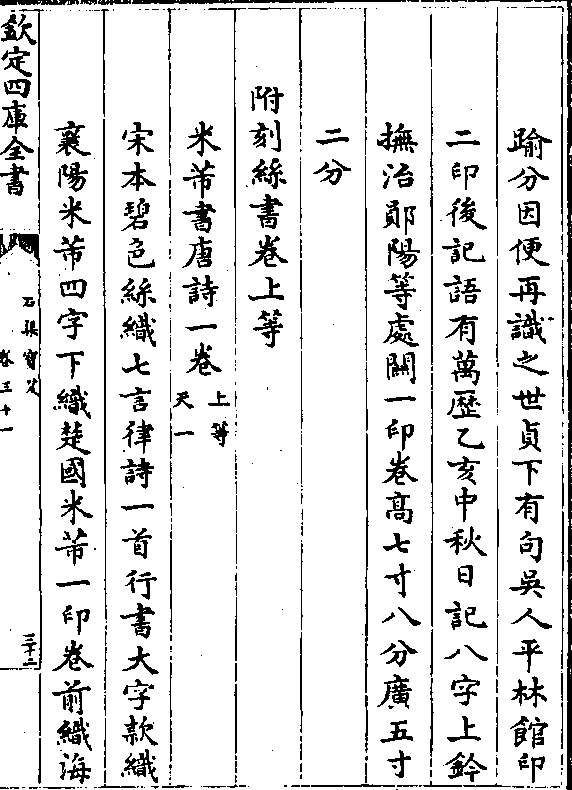 踰分因便再識之世貞下有句吳人平林館印
二印後記語有萬歷乙亥中秋日記八字上鈐
撫治鄖陽等處關一印卷高七寸八分廣五寸
二分
附刻絲書卷上等
米芾書唐詩一卷 上等 天一
宋本碧色絲織七言律詩一首行書大字款織
襄陽米芾四字下織楚國米芾一印卷前織海
欽定四庫全書
石渠寳笈
卷三十一
三十二